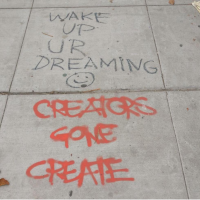 WAKE
UP
UR
DREAMING
CREATORS
GONE
CREATE